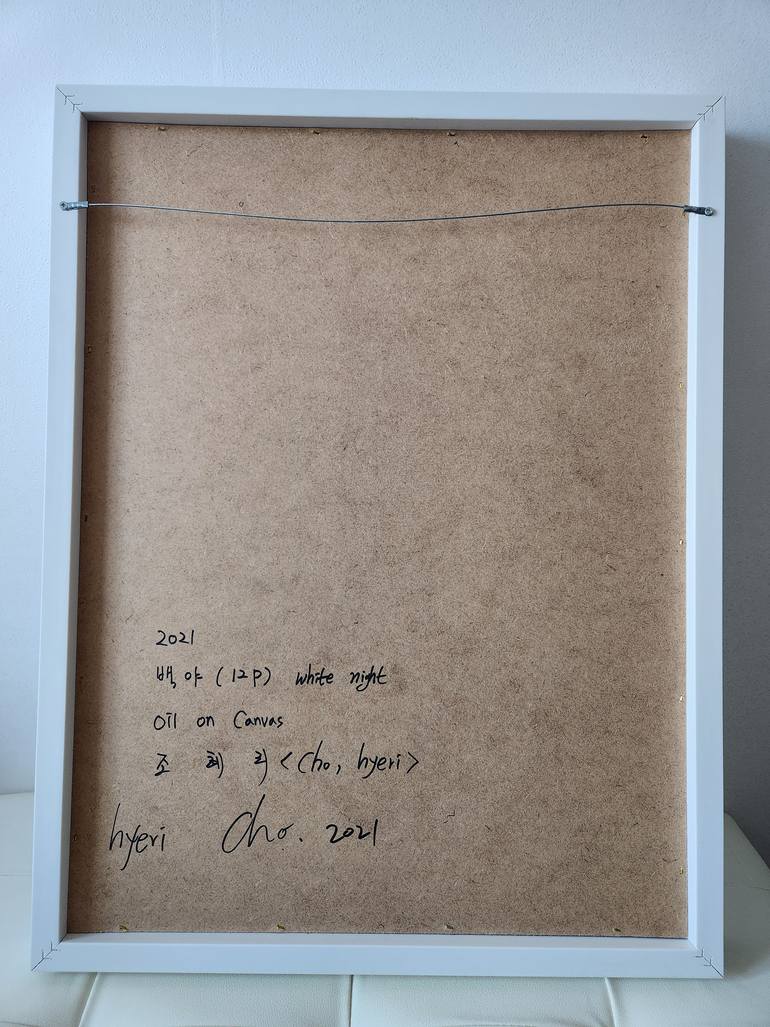 2021
백야 (12P) white night
oil on Canvas
조 혜 리 <Cho, hyeri>
hyeri Cho. 2021